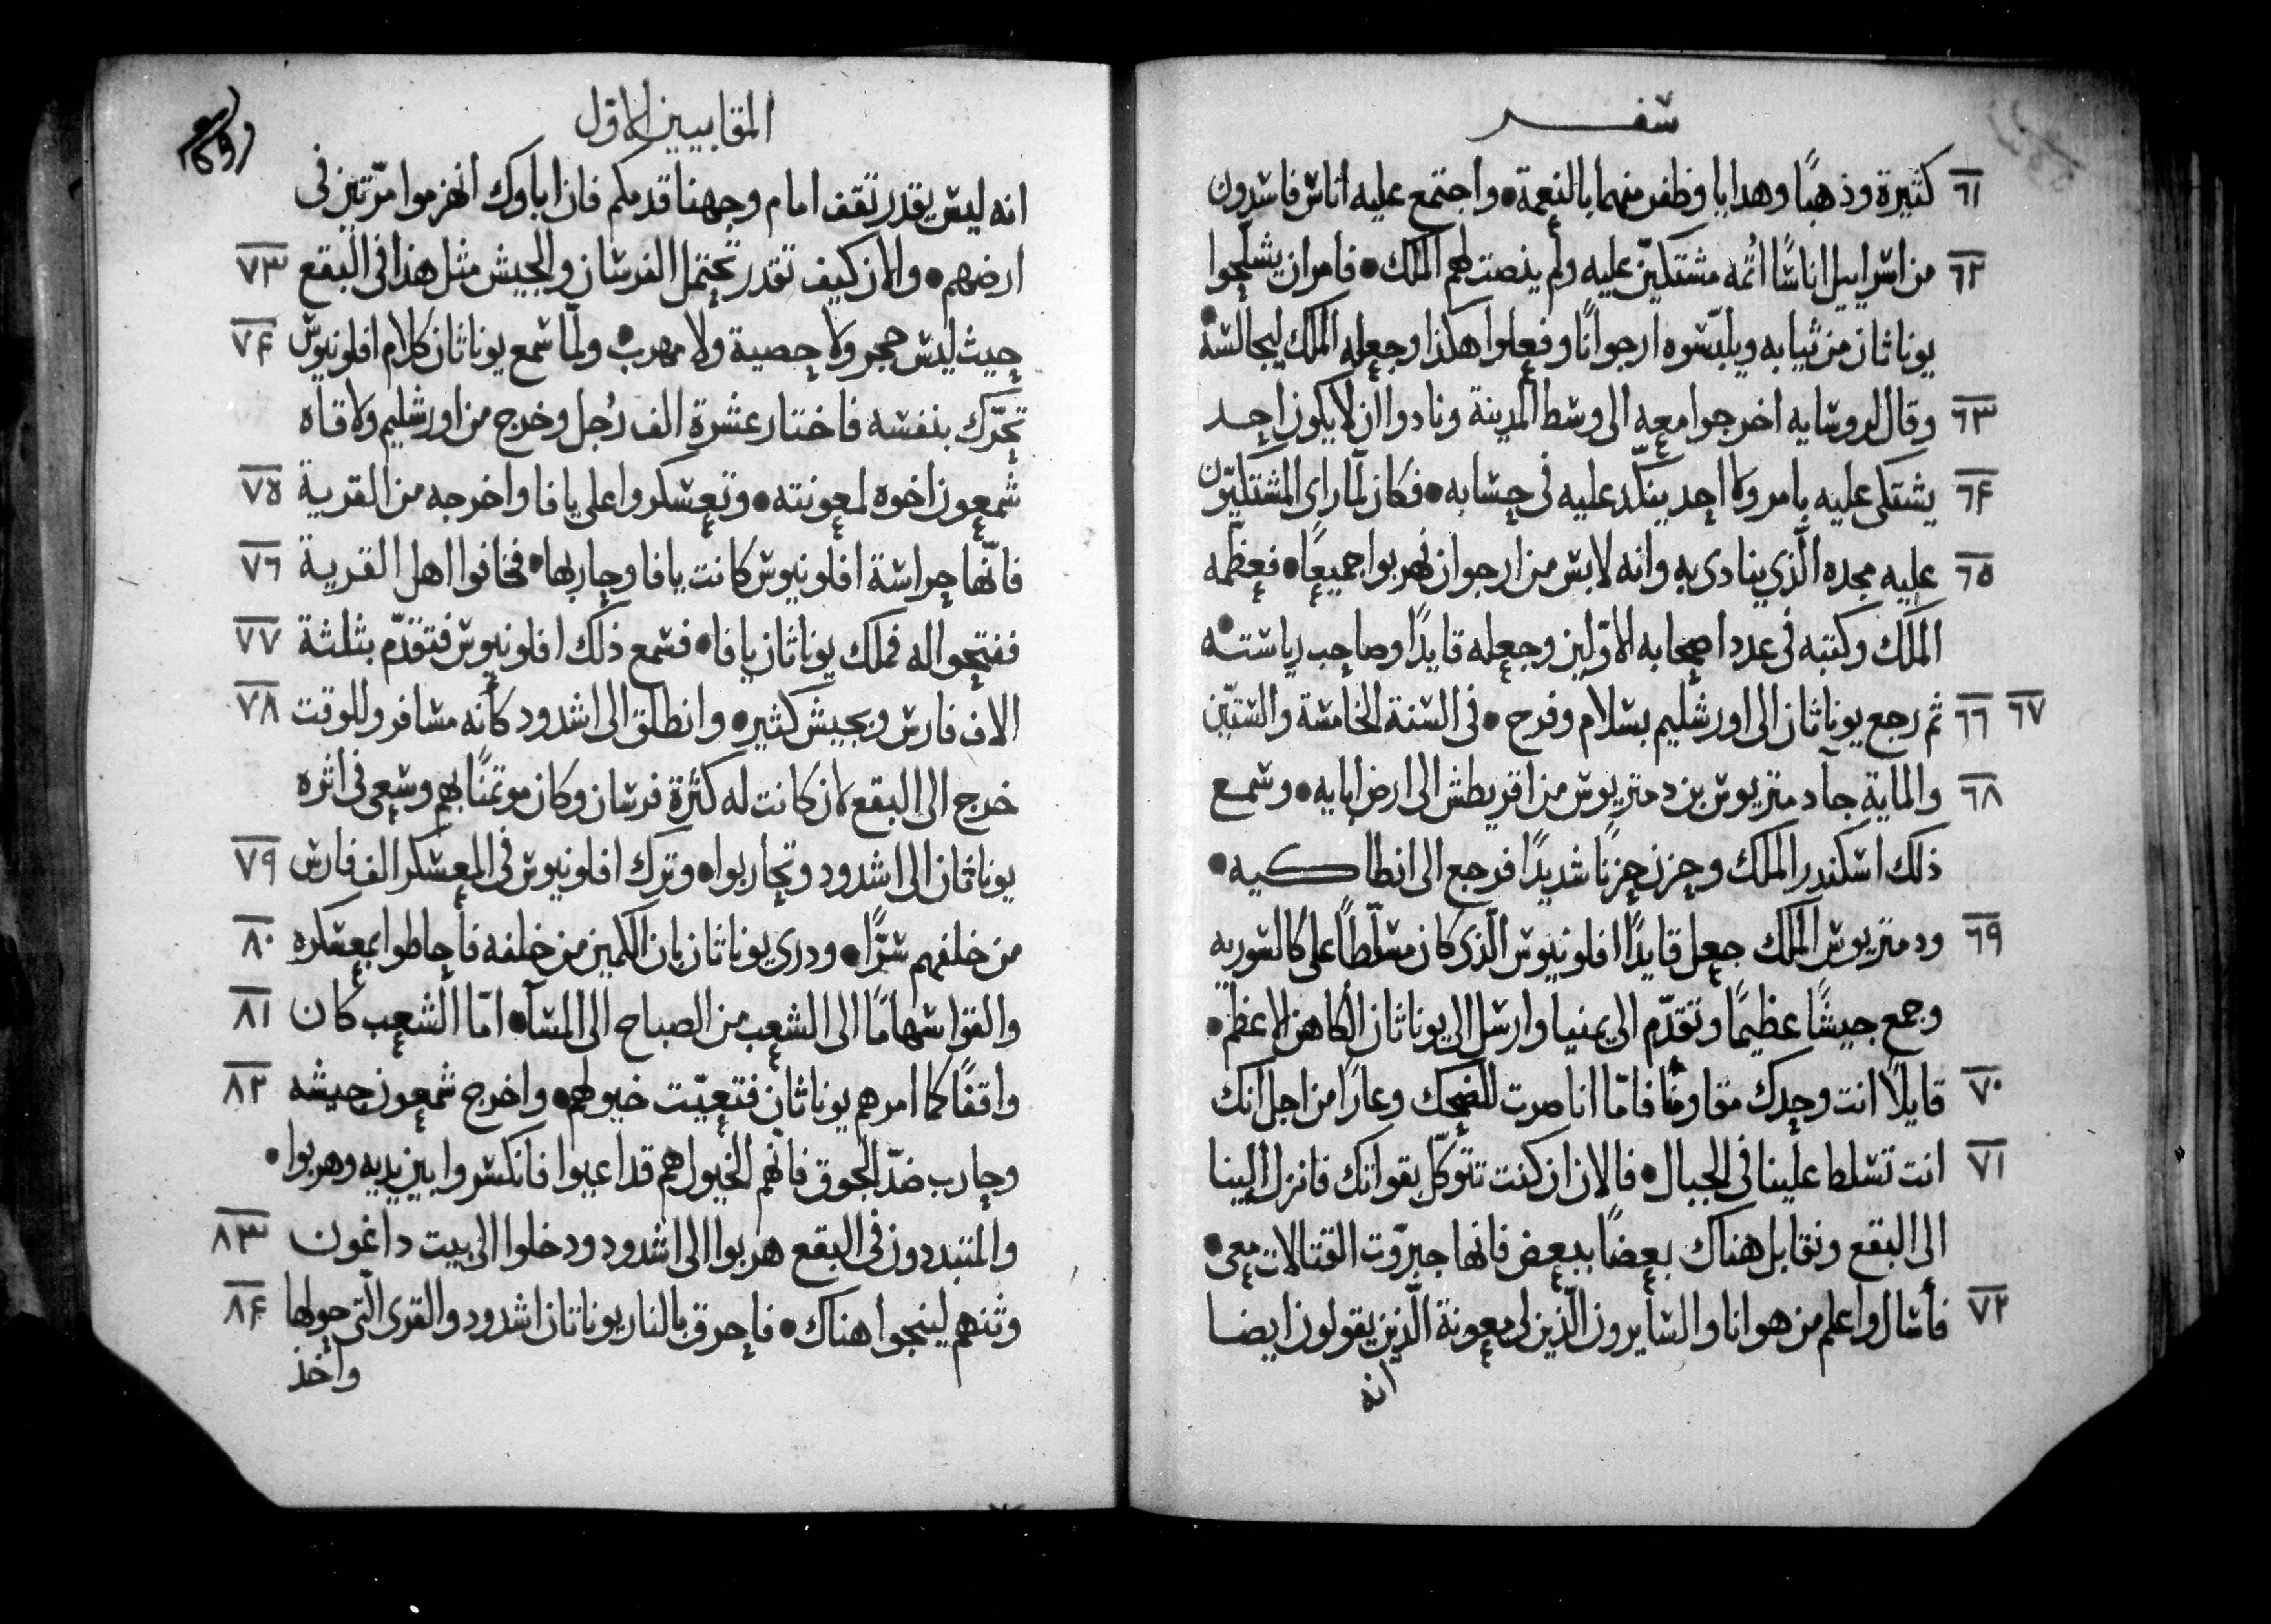 سفر
٦١ كثيرة وذهبًا وهدايا وظفر منهما بالنعمة • واجتمع عليه اناس فاسدون
٦٢ من اسراييل اناسًا اثمه مشتكيّن عليه ولم ينصت لهم الملك • فامر ان يشلحوا
يوناثان من ثيابه ويلبّسوه ارجوانًا وفعلوا هكذا وجعله الملك ليجالسه •
٦٣ وقال لروسايه اخرجوا معه الى وسط المدينة ونادوا ان لا يكون احد
٦٤ يشتكى عليه بامر ولا احد ينكّد عليه فى حسابه • فكان لمّا راى المشتكيّن
٦٥ عليه مجده الّذي ينادى به وانه لابس من ارجوان هربوا جميعًا • فعظّمه
الملك وكتبه فى عدد اصحابه الاوّلين وجعله قايدًا وصاحب رياسته •
٦٦ ٦٧ ثم رجع يوناثان الى اورشليم بسلام وفرح • فى السنة الخامسة والستّين
٦٨ والماية جآ دمتريوس بن دمتريوس من اقريطش الى ارض ابايه • وسمع
ذلك اسكندر الملك وحزن حزنًا شديدًا فرجع الى انطاكيه •
٦٩ ودمتريوس الملك جعل قايدًا افلونيوس الّذى كان مسلّطًا على كالسوريه
وجمع جيشًا عظيمًا وتقدّم الى يمنيا وارسل الى يوناثان الكاهن الاعظم •
٧٠ قايلًا انت وحدك مقاومًا فامّا انا صرت للضحك وعارًا من اجل انك
٧١ انت تسلط علينا فى الجبال • فالان ان كنت تتوكّل بقواتك فانزل الينا
الى البقع ونقابل هناك بعضًا ببعض فانها جبرّوت القتالات معى •
٧٢ فأسال واعلم من هو انا والسايرون الّذين لى معونة الّذين يقولون ايضا
انه
المقابيين الاوّل
انه ليس يقدر تقف امام وجهنا قدمكم فان اباوك انهزموا مرّتين فى
ارضهم • والان كيف تقدر تحتمل الفرسان والجيش مثل هذا فى البقع ٧٣
حيث ليس حجر ولا حصية ولا مهرب • ولمّا سمع يوناثان كلام افلونيوس ٧٤
تحرّك بنفسه فاختار عشرة الف رُجل وخرج من اورشليم ولاقاه
شمعون اخوه لمعونته • وتعسكروا على يافا واخرجه من القرية ٧٥
فانّها حراسة افلونيوس كانت بيافا وحاربها • فخافوا اهل القرية ٧٦
ففتحوا له فملك يوناثان يافا • فسمع ذلك افلونيوس فتقدّم بثلثة ٧٧
الاف فارس وبجيش كثير • وانطلق الى اشدود كأنه مسافر وللوقت ٧٨
خرج الى البقع لان كانت له كثرة فرسان وكان موتمنًا بهم وسعى فى اثره
يوناثان الى اشدود وتحاربوا • وترك افلونيوس فى المعسكر الف فارس ٧٩
من خلفهم سرًّا • ودرى يوناثان بان الكمين من خلفه فأحاطوا بمعسكره ٨٠
والقوا سهامًا الى الشعب من الصباح الى المسآ • امّا الشعب كان ٨١
واقفًا كما امرهم يوناثان فتعيّت خيولهم • واخرج شمعون جيشه ٨٢
وحارب ضدّ الجوق فانّهم الخيول هم قد اعيوا فانكسروا بين يديه وهربوا •
والمتبددون فى البقع هربوا الى اشدود ودخلوا الى بيت داغون ٨٣
وثنهم لينجوا هناك • فاحرق بالنار يوناثان اشدود والقرى الّتى حولها ٨٤
واخذ